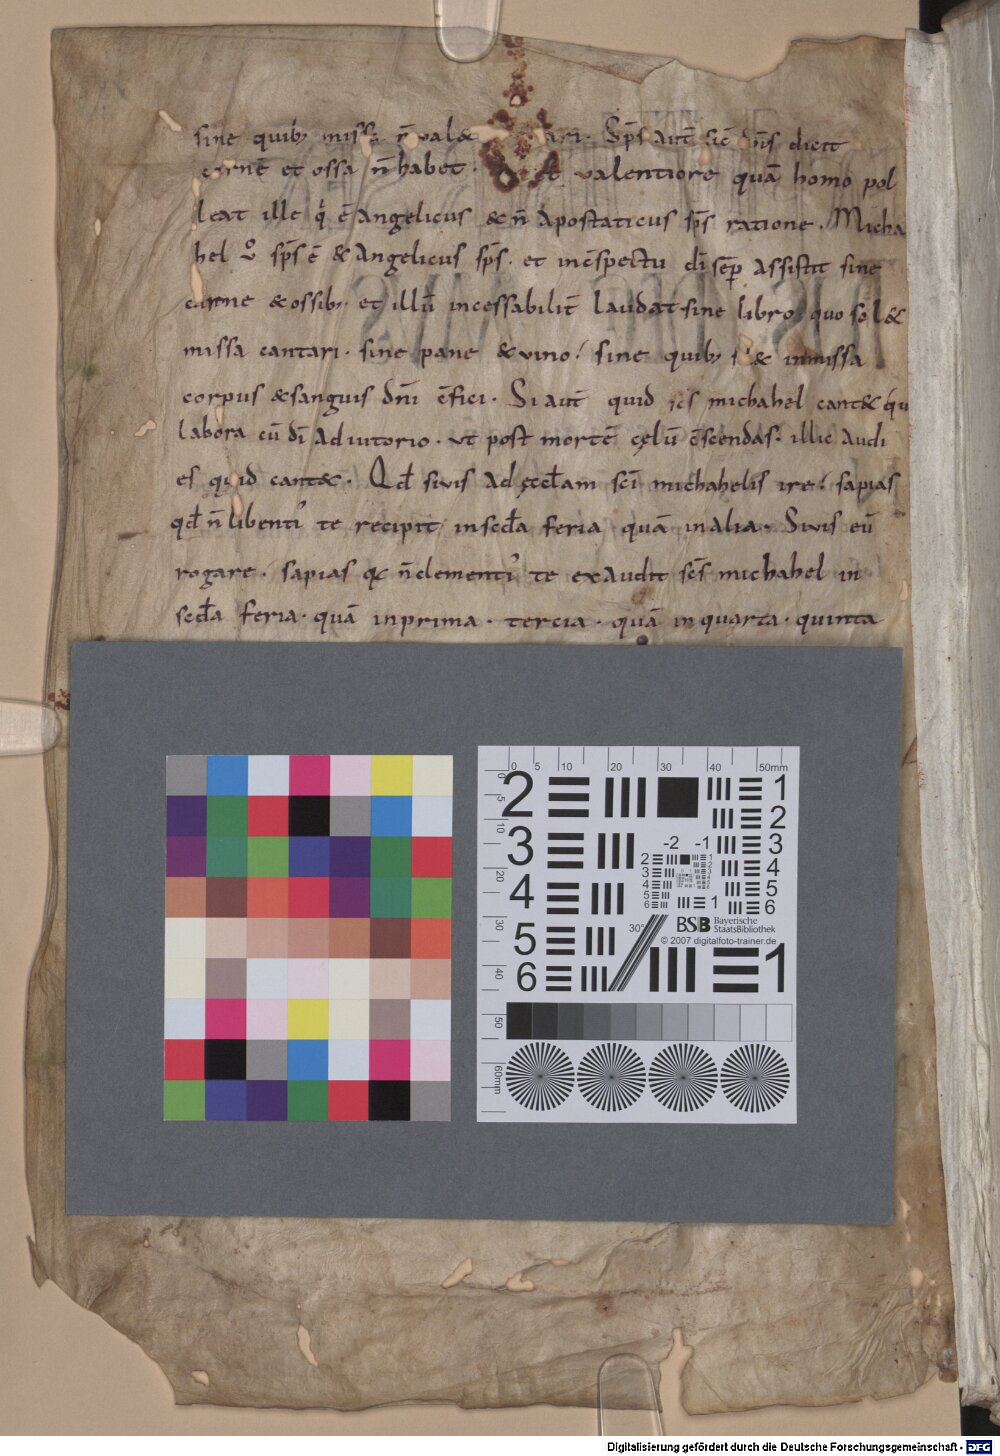 sine quib; missa n̄ valet cantari. Sp̄s aut̄ sic̄ dn̄s dicit
carnē et ossa n̄ habet. valentiore quā homo pol
leat ille q̇ ē Angelicus & n̄ Apostaticus sp̄s ratione. Micha
hel v̊ sp̄s ē & Angelicus sp̄s. et inc̄spectu dī sēp Assistit sine
carne & ossib; et illū incessabilit̄ laudat sine libro quo sol&
missa cantari. sine pane & vino. sine quib; & inmissa
corpus & sanguis dn̄i c̄fici. Si aut̄ quid sc̄s michahel cant& qu
labora cū dī Adiutorio. ut post mortē cęlū c̄scendas. illic Audi
es quid cant&. Qd̄ sivis Ad ęccl̄am sc̄i michahelis ire. sapias
qd̄ n̄ libenti᾽ te recipit insecd̄a feria quā inalia. Sivis eū
rogare. sapias qd̄ n̄ clementi᾽ te exAudit sc̄s michahel in
secd̄a feria. quā inprima. tercia. quā inquarta. quinta
0 5 10 20 30 40 50mm
2 3 4 5 6
-2 -1
1 2 3 4 5 6
30°
BSB Bayerische StaatsBibliothek
© 2007 digitalfoto-trainer.de
1
10 20 30 40 50 60mm
Digitalisierung gefördert durch die Deutsche Forschungsgemeinschaft - DFG